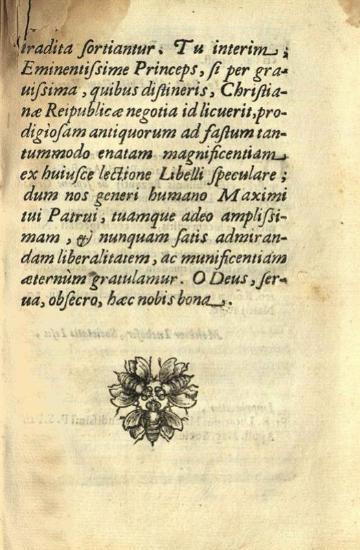 tradita ſortiantur. Tu interim,
Eminentiſsime Princeps, ſi per gra-
uiſsima, quibus diſtineris, Chriſtia-
næ Reipublicæ negotia id licuerit, pro-
digioſam antiquorum ad faſtum tan-
tummodo enatam magnificentiam
ex huiuſce lectione Libelli ſpeculare;
dum nos generi humano Maximi
tui Patrui, tuamque adeo ampliſsi-
mam, & nunquam ſatis admiran-
dam liberalitatem, ac munificentiam
æternùm gratulamur. O Deus, ſer-
ua, obſecro, hæc nobis bona.